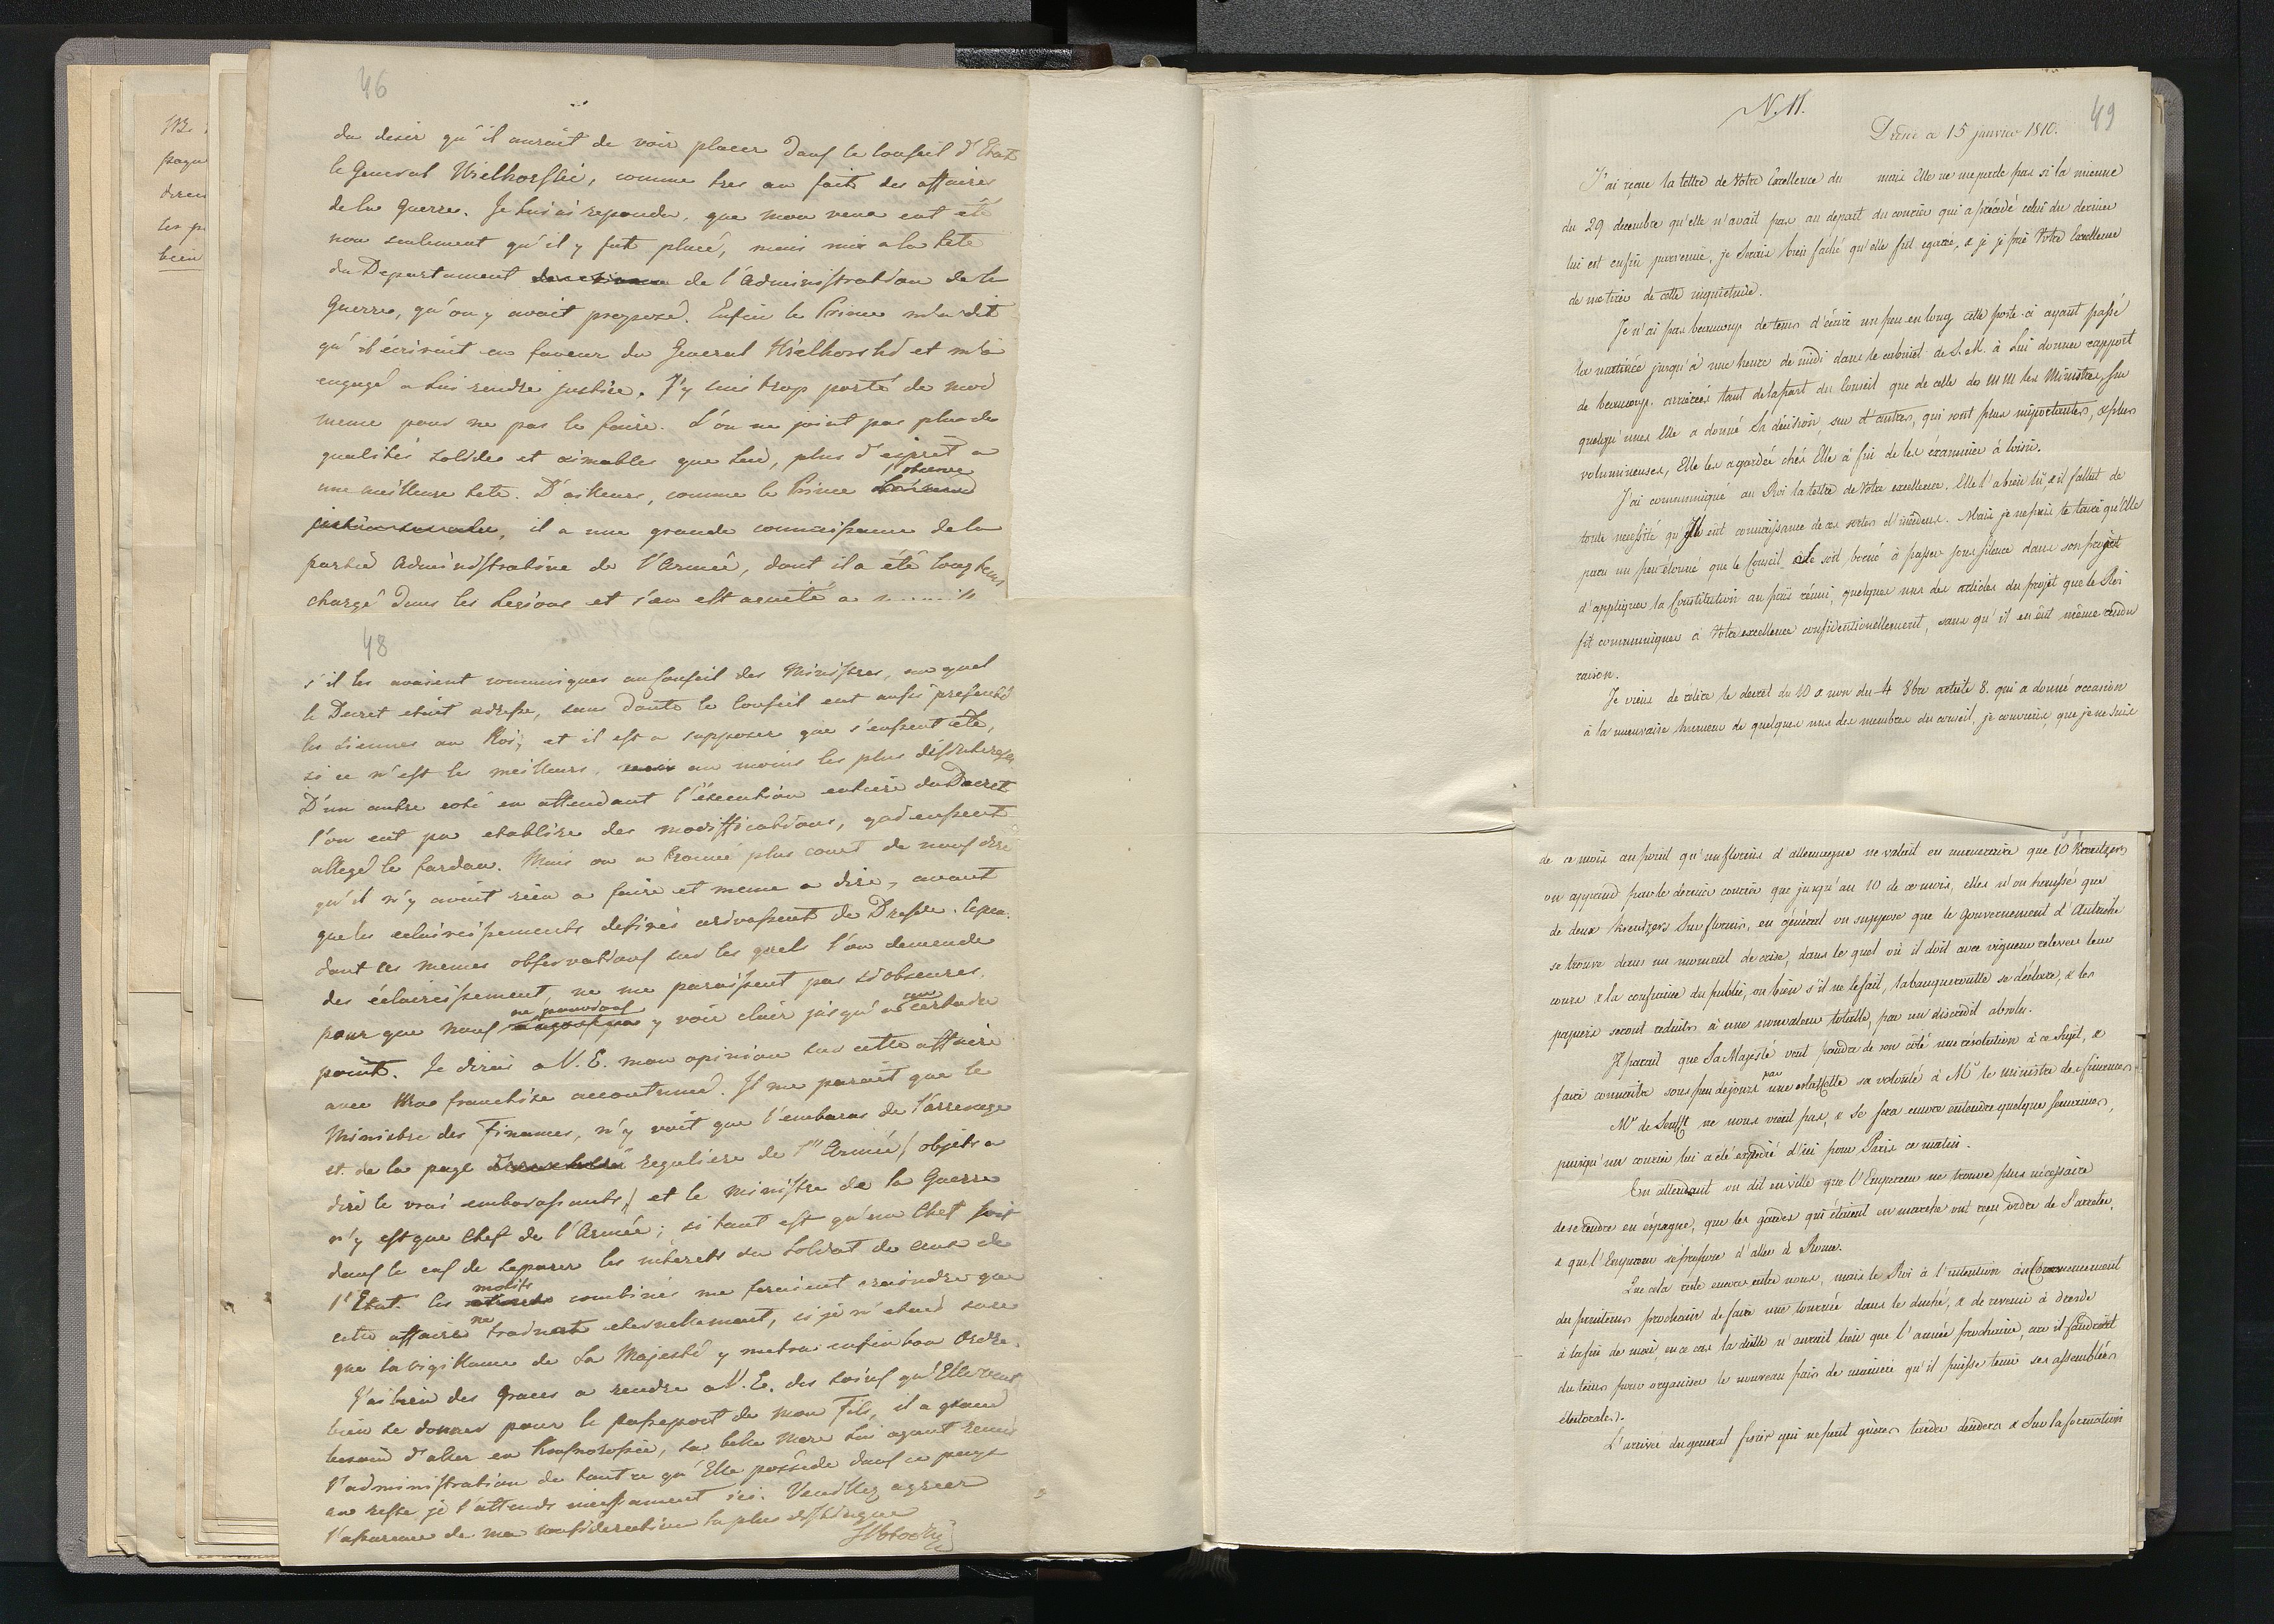 46
du desir qu'il aurait de voir placer dans le Conseil d'Etat
le General Wielhorski, comme tres au faits des affaires
de la Guerre. Je lui ai repondu, que mon veue eut été
non seulement qu'il y fut placé, mais mis a la tete
du Departament de l'Administration de la
Guerre, qu'on y avait proposé. Enfin le Prince m'a dit
qu'il écrivait en faveur du General Wielhorski et m'a
engagé a lui rendre justice. J'y suis trop porté de moi
meme pour ne pas le faire. L'on ne joint pas plus de
qualités solides et aimables que lui, plus d'esprit a
une meilleure tete. D'ailleurs, comme le Prince l'observe
il a une grande connaissance de la
partie Administrative de l'Armée, dont il a été longtems
chargé dans les Legions et s'en est aquité a
48
s'il les avaient communiques au Conseil des Ministres, au quel
le Decret etait adresse, sans doute le Conseil eut aussi presenté
les siennes au Roi, et il est a supposer que s'eussent été,
si ce n'est les meilleurs, au moins les plus
D'un autre coté en attendant l'éxecution entiere du Decret
l'on eut pu etablire des modifficutions, qui eussent
allegé le fardau. Mais on a trouvé plus court de nous dire
qu'il n'y avait rien a faire et meme a dire, avant
que les eclaircissements desirés arivassent de Dresde. Cepen-
dant ces memes observations sur les quels l'on demende
des éclaircissement, ne me paraissent pas si obscures,
pour que nous ne puissions y voir clair jusqu'a un certain
point. Je dirai a V. E. mon opinion sur cette affaire
avec ma franchise accoutumée. Il me parait que le
Ministre des Finances, n'y voit que l'embaras de l'arrerage
et de la paye reguliere de l'Armée (objets a
dire le vrai embarassants) et le Ministre de la Guerre
n'y est que Chef de l'Armée; si tant est qu'un Chef soit
dans le cas de separer les intérets du Soldat de ceux de
l'Etat. Ces motifs combinés me feraient craindre que
cette affaire ne traine eternellement, si je n'etais sure
que la vigilance de Sa Majesté y mettra enfin bon Ordre.
J'ai bien des Graces a rendre a V. E. des soins qu'Elle veut
bien se donner pour le passeport de mon Fils, il a grand
besoin d'aller en, sa belle Mere lui ayant remis
l'administration de tout ce qu'Elle possede dans ce pays
au reste je l'attends incessament ici. Veuillez agreer
l'assurance de ma consideration la plus distinguée
SPotocki
N. 11.
49
Dresde a 15 janvier 1810.
J'ai reçue la lettre de Votre Excellence du mais Elle ne me parle pas si la mienne
du 29 decembre qu'elle n'avait pas au depart du courier qui a précédé celui du dernier
lui est enfin parvenue, je serais bien faché qu'elle fut egarée, & je prie Votre Excellence
de me tirer de cette inquietude.
Je n'ai pas beaucoup de tems d'écrire un peu en long cette poste-ci ayant passé
la matinée jusqu'à une heure de midi dans le cabinet de S. M. à Lui donner rapport
de beaucoup arriérés tant de la part du Conseil que de celle de MM les Ministres, sur
quelqu'unes Elle a donné Sa décision, sur d'autres, qui sont plus importantes, & plus
volumineuses, Elle les a gardée chés Elle à fin de les examiner à loisir.
J'ai communiqué au Roi la lettre de Votre excellence. Elle l'a bien lû & il fallait de
toute necessité qu'Il eut connaissance de ces sortes d'incidens. Mais je ne puis te taire qu'Elle
paru un peu étonné que le Conseil se soit borné à passer sous silence dans son projet
d'appliquer la Constitution au païs réuni, quelques uns des articles du projet que le Roi
fit communiquer à Votre excellence confidentionellement, sans qu'il en eut même rendu
raison.
Je viens de relire le decret du 10 & non du 4 8bre article 8. qui a donné occasion
à la mauvaise humeur de quelques uns des membres du conseil, je conviens, que je ne suis
de ce mois au point qu'un florin d'allemagne ne valait en numeraire que 10 Kreutzers
on apprend par le dernier courier que jusqu'au 10 de ce mois, elles n'on haussé que
de deux Kreutzers Sur florin, en général on suppose que le Gouvernement d'Autriche
se trouve dans un moment de crise, dans le quel où il doit avec vigueur relever leur
cours & la confiance du public, ou bien s'il ne le fait, la banqueroutte se déclare, & les
papiers seront reduits à une nonvaleur totalle, par un discredit absolu.
Il parait que Sa Majesté veut prendre de son côté une résolution à ce Sujet, &
faire connaitre sous peu de jours par une estaffette sa volonté à Mr le ministre des finances
Mr de Senfft ne nous vient pas, & se fera encore entendre quelque semaines,
puisqu'un courier lui a été expedié d'ici pour Paris ce matin.
En attendant on dit en ville que l'Empereur ne trouve plus nécessaire
de se rendre en éspagne, que les gardes qui étaient en marche ont reçu ordre de S'arreter,
& que l'Empereur se propose d'aller à Rome.
Que cela reste encore entre nous, mais le Roi à l'intention au Commencement
du printems prochain de faire une tournée dans le duché, & de revenir à dresde
à la fin de mai, en ce cas la diette n'aurait lieu que l'année prochaine, car il faudrait
du tems pour organiser le nouveau païs de manière qu'il puisse tenir ses assemblées
électorales.
L'arrivée du general fiszer qui ne peut guères tarder décidera & Sur la formation